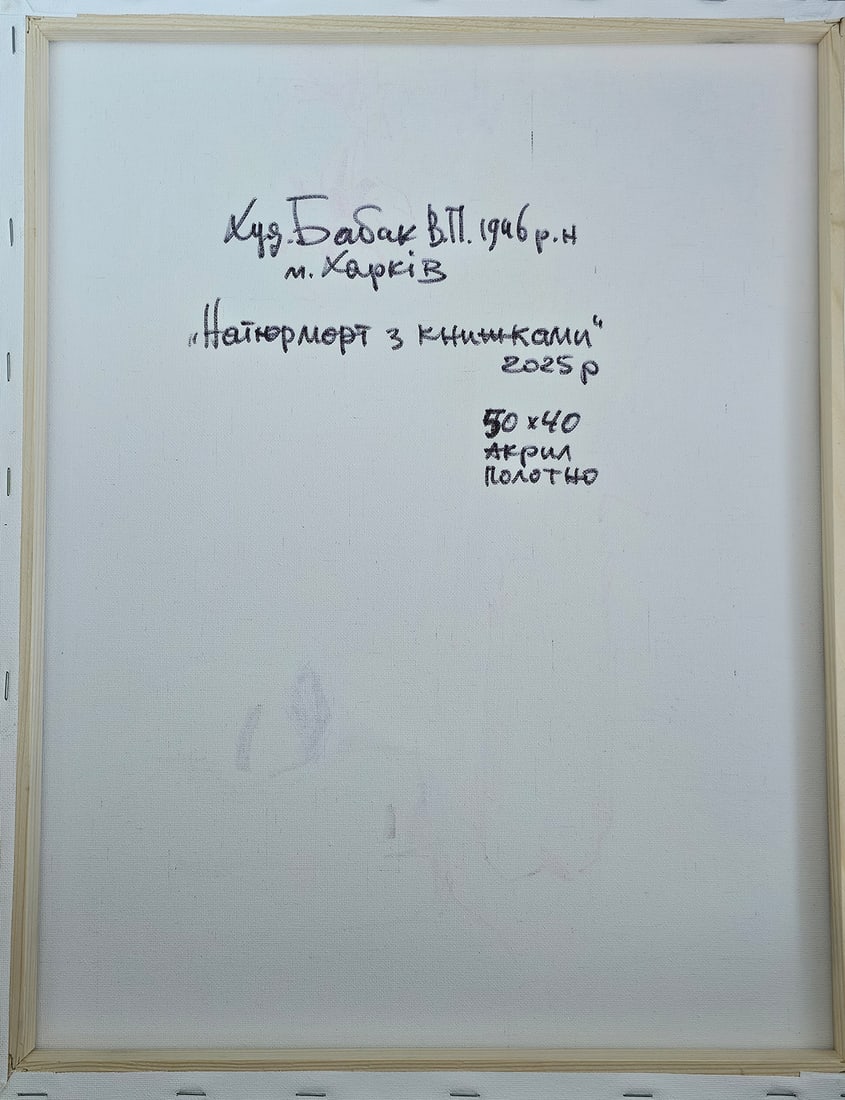 Худ. Бабак В.П. 1946 р.н
м. Харків
„Натюрморт з книжками"
2025 р
50 х 40
Акрил
Полотно